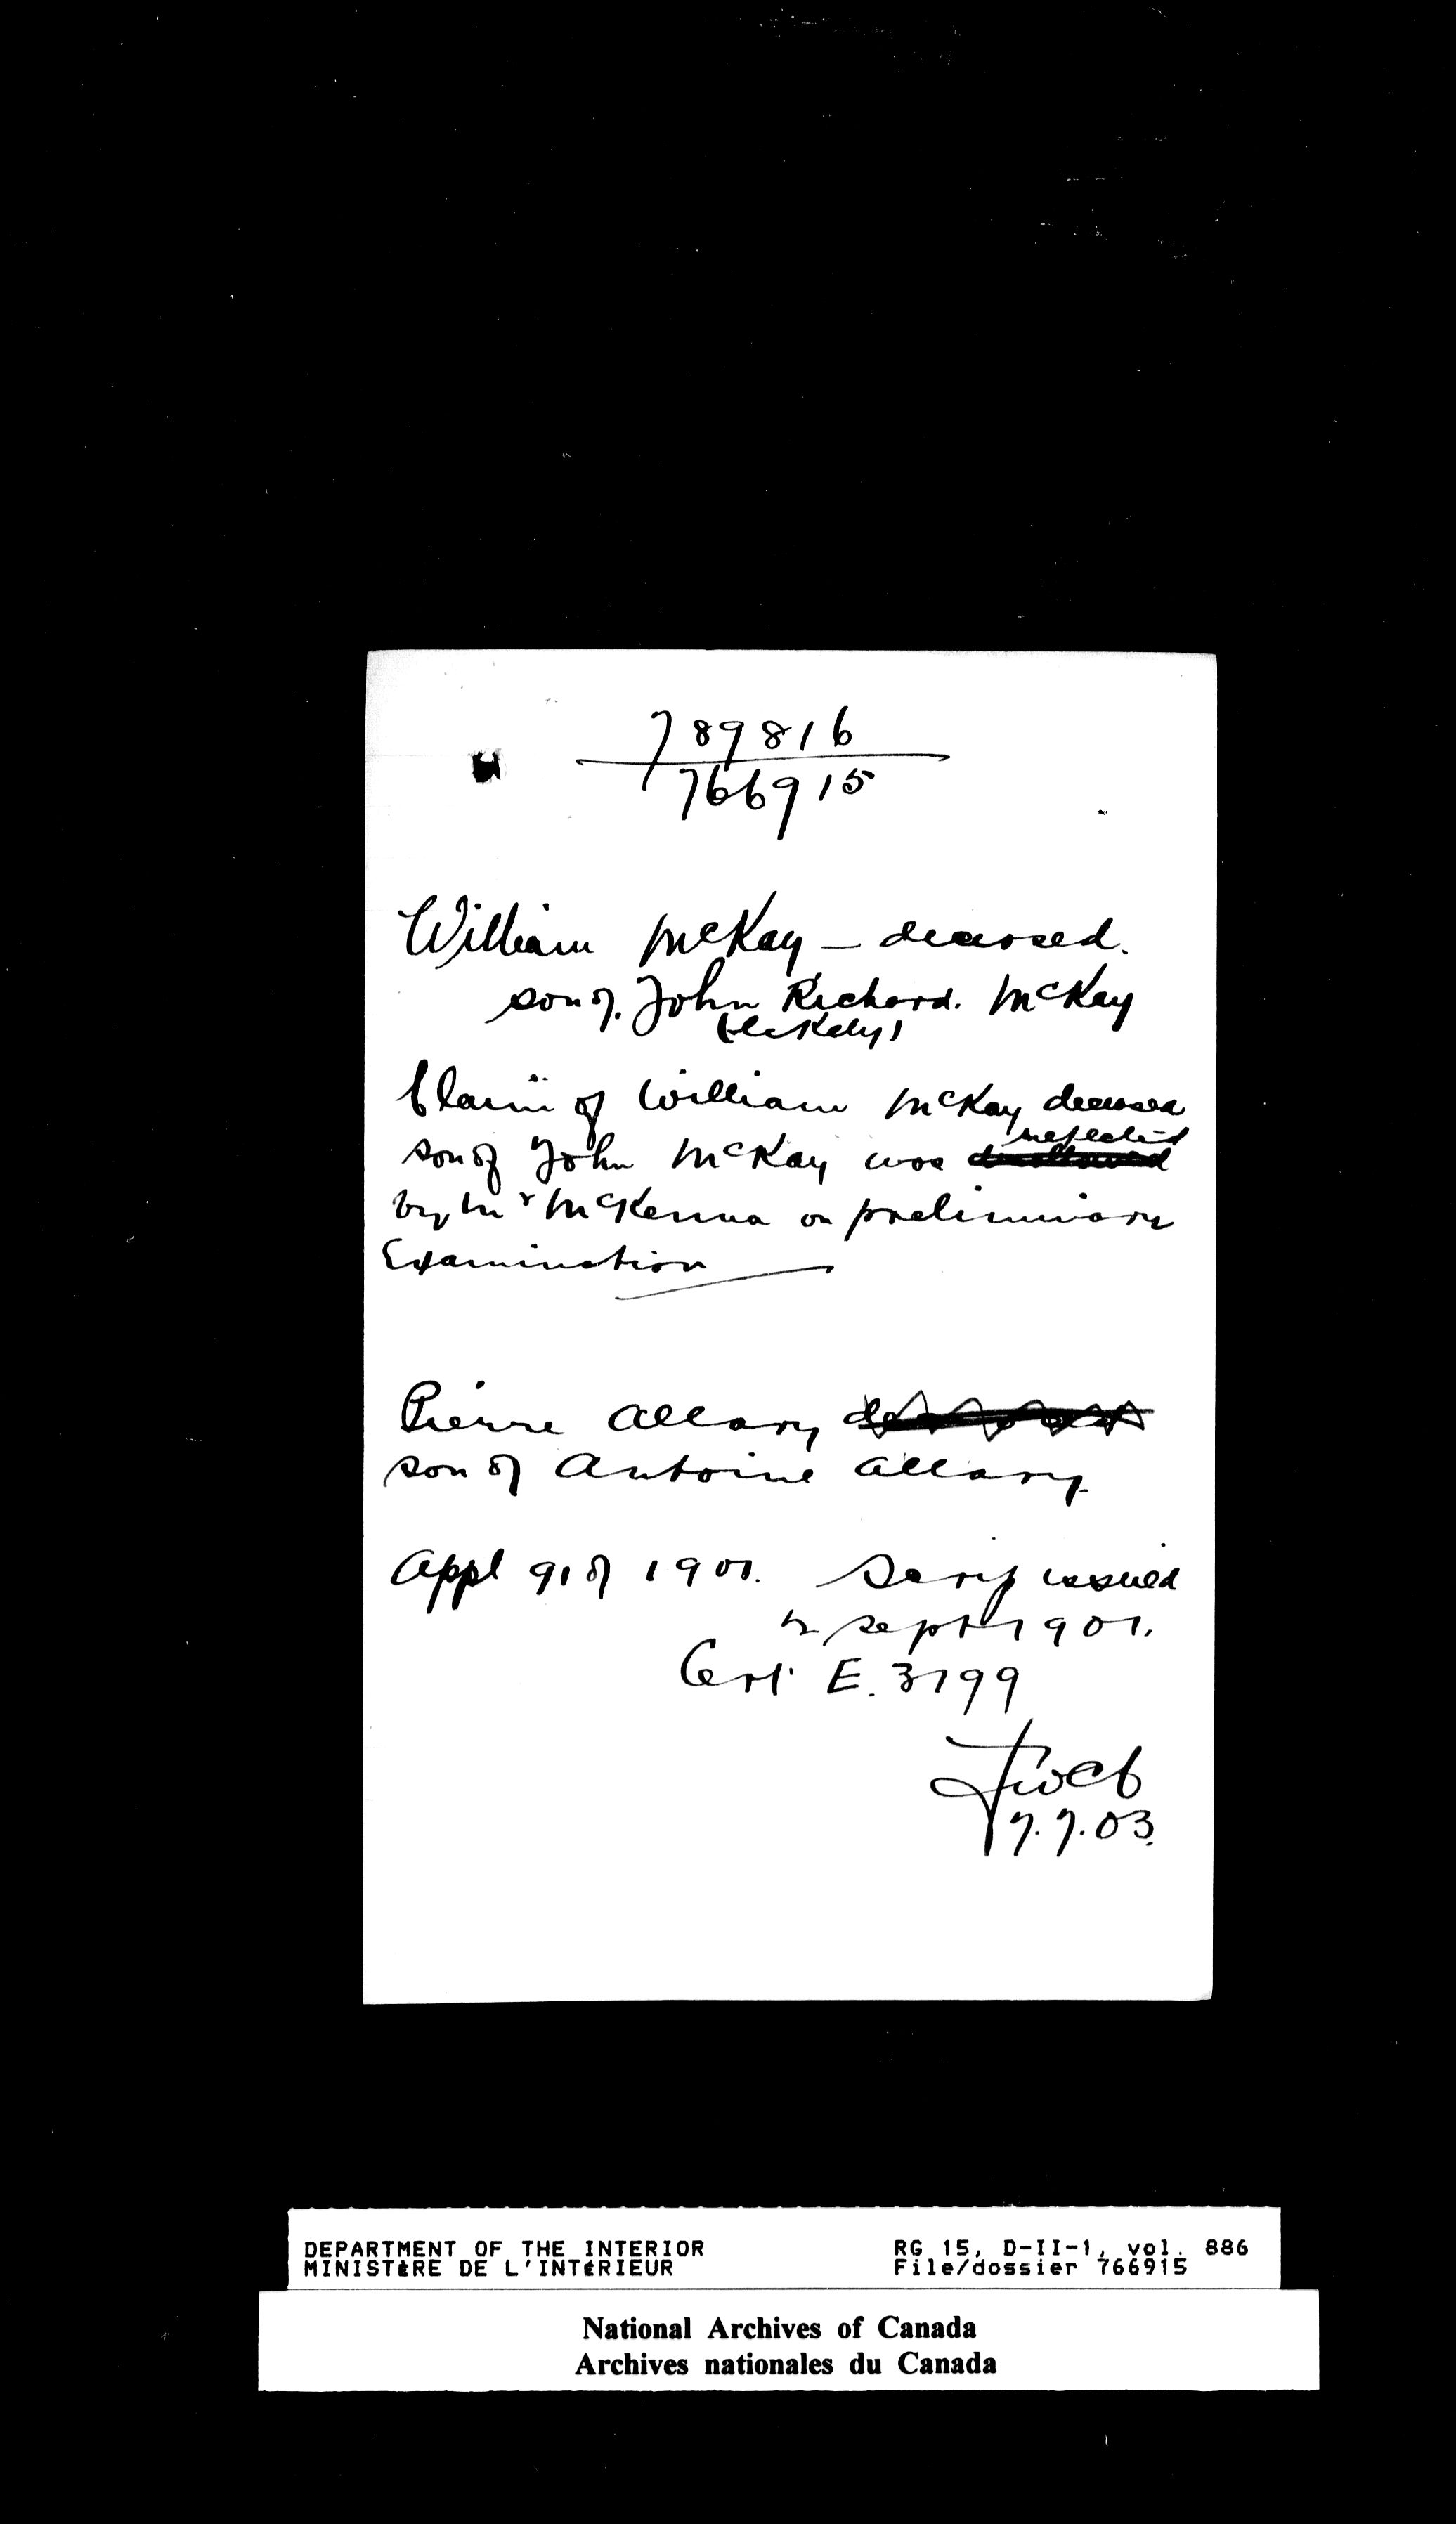 789816
766915
William McKay — deceased.
son of. John Richard. McKay
(likely)
Claim of William McKay deceased
son of John McKay was rejected
by Mr McKenna on preliminary
Examination
Pierre Allary
son of Antoine Allary.
Appl 91 of 1901. Scrip issued
in Sept 1901.
Cert. E. 3799
7.7.03.
DEPARTMENT OF THE INTERIOR RG 15, D-II-1, vol. 886
MINISTÈRE DE L'INTÉRIEUR File/dossier 766915
National Archives of Canada
Archives nationales du Canada